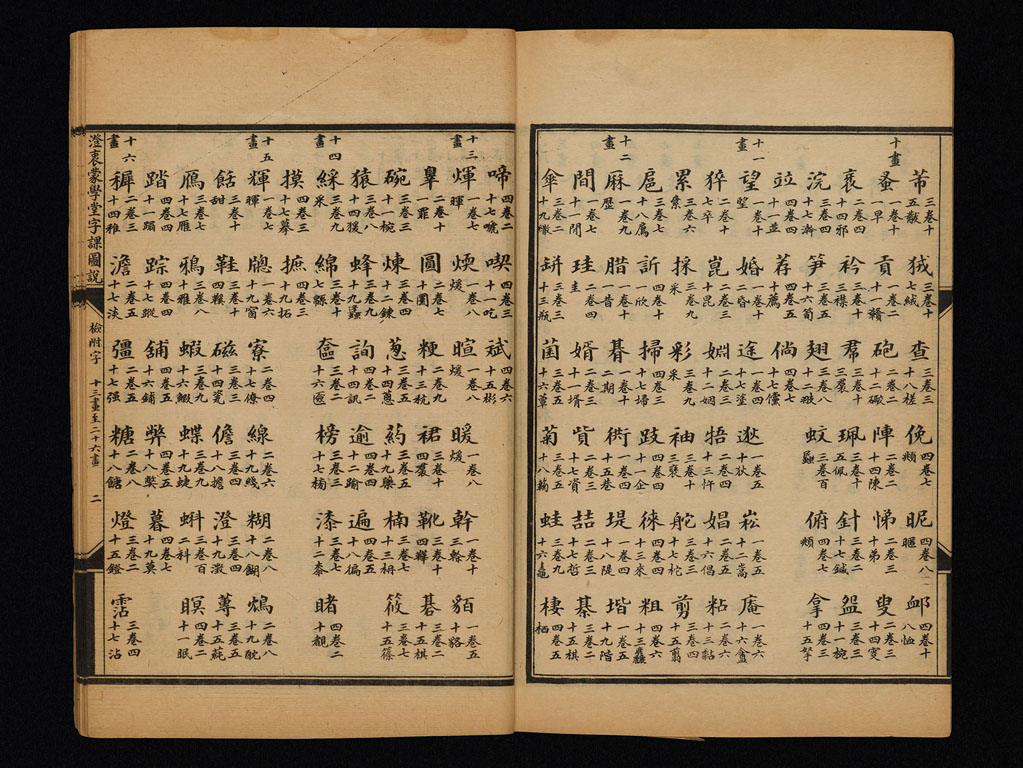 十畫
芾 三卷十五黻 狨 三卷十七絨 查 三卷三十八槎 俛 四卷七頫 昵 四卷八暱 卹 四卷十八恤
蚤 一卷十一早 貢 二卷十一贛 砲 二卷十二礮 陣 二卷十四陳 悌 二卷三十弟 叟 二卷三十四叜
衺 二卷四十四邪 衿 三卷十三襟 羣 三卷十三裠 珮 三卷十五佩 針 三卷十七鍼 盌 三卷三十一椀
浣 三卷四十七澣 笋 三卷五十六筍 翅 三卷八十二翄 蚊 三卷百蟁 俯 四卷七頫 拿 四卷三十五拏
竝 一卷十一並 荐 四卷五十薦 倘 四卷七十七儻
十一畫
望 一卷十朢 婚 二卷二昏 途 一卷四十七塗 逖 一卷五十狄 崧 一卷五十二嵩 庵 一卷六十六盦
猝 二卷三十七卒 崑 二卷三十昆 婣 二卷二十二姻 牾 二卷四十三忤 娼 二卷三十六倡 粘 二卷六十三黏
累 三卷六絫 採 三卷九采 彩 三卷九采 袖 四卷三褎 舵 三卷七十七柁 剪 三卷四十五翦
扈 三卷七十八屬 訢 四卷十一欣 掃 四卷三十七埽 跂 四卷四十一企 徠 四卷四十三來 粗 四卷六十三麤
十二畫
麻 一卷九歷 腊 一卷十一昔 朞 一卷十二期 衖 一卷四十五巷 堤 一卷五十八隄 堦 一卷六十九階
間 一卷七十一閒 珪 二卷四圭 婿 二卷三十一壻 貲 二卷五十七資 喆 二卷三十七哲 棊 三卷二十五棋
傘 三卷二十九繖 缾 三卷三十三瓶 菌 三卷五十六蕈 菊 三卷五十八蘜 蛙 三卷九十六鼃 棲 四卷五栖
十三畫
啼 四卷二十七嗁 喫 四卷三十一吃 斌 四卷六十五彬
煇 一卷七暉 煗 一卷八煖 暄 一卷八煖 暖 一卷八煖 幹 一卷十三榦 貊 一卷五十貉
辠 二卷十一罪 圓 二卷七十圜 粳 二卷六十三秔 裙 三卷十四裠 靴 三卷十四鞾 碁 三卷二十五棋
碗 三卷三十一椀 煉 三卷四十二鍊 葱 三卷五十四蔥 葯 三卷五十九藥 楠 三卷七十三枏 筱 三卷七十五篠
猿 三卷八十四猨 蜂 三卷九十九蠭 詢 四卷二十四訊 逾 四卷四十二踰 遍 四卷五十八徧
摸 四卷三十七摹 摭 四卷三十九拓
十四畫
綵 三卷九采 綿 三卷十七緜 奩 三卷二十六匳 榜 三卷五十七牓 漆 三卷七十二桼 睹 四卷二十覩
十五畫
輝 一卷七暉 牕 一卷六十九窗 寮 二卷四十七僚 線 二卷六十九綫 糊 二卷八十八餬 鴆 二卷八十九酖
餂 三卷十甜 鞋 三卷十四鞵 磁 三卷三十四瓷 儋 四卷四十八擔 澄 三卷四十九澂 蓴 三卷五十五蒓
鴈 三卷七十七雁 鴉 三卷八十雅 蝦 三卷九十六鰕 蝶 三卷九十九蜨 蝌 三卷百二科 瞑 四卷二十一眠
踏 四卷四十一蹋 踪 四卷四十七蹤 舖 四卷五十六鋪 弊 四卷五十八獘 暮 四卷五十九莫
十六畫
穉 二卷三十四稚 澹 二卷五十七淡 彊 二卷五十七强 糖 二卷八十八餹 燈 三卷二十五鐙 霑 三卷四十七沾
澄衷蒙學堂字課圖說
檢附字 十三畫至二十六畫 二